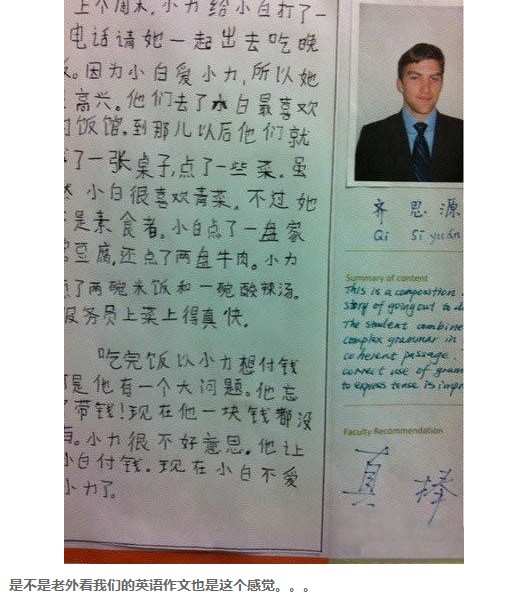 上个周末,小力给小白打了一
电话请她一起出去吃晚
。因为小白爱小力,所以她
高兴。他们去了小白最喜欢
饭馆。到那儿以后他们就
了一张桌子,点了一些菜。虽
小白很喜欢青菜,不过她
是素食者。小白点了一盘家
豆腐,还点了两盘牛肉。小力
了两碗米饭和一碗酸辣汤。
服务员上菜上得真快。
吃完饭以小力想付钱
是他有一个大问题。他忘
带钱!现在他一块钱都没
。小力很不好意思。他让
小白付钱。现在小白不爱
小力了。
齐思源
Qi Sī yuán
Summary of content
This is a composition
story of going out to di
The student combine
complex grammar in
coherent passage.
correct use of gram
to express tense is impr
Faculty Recommendation
真棒
是不是老外看我们的英语作文也是这个感觉。。。